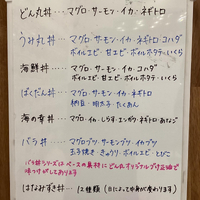 どん丼・・・マグロ・サーモン・イカ・ネギトロ
うみ丸丼・・・マグロ・サーモン・イカ・ネギトロ・コハダ
ボイルエビ・甘エビ・ボイルホタテ・いくら
海鮮丼・・・マグロ・サーモン・イカ・コハダ
ボイルエビ・甘エビ・ボイルホタテ・いくら
ばくだん丼・・・マグロ・サーモン・イカ・ネギトロ
納豆・明太子・たくあん
海の幸丼・・・マグロ・イカ・しらす・エンガワ・ネギトロ・あなご
バラ丼・・・マグロブツ・サーモンブツ・イカブツ
玉子焼き・きゅうり・ボイルエビ・とびこ
バラ丼シリーズはベースの具材にどん丸オリジナルづけ正油で
味つけがしてあります
はなみずき丼・・・12種類(日によって中身が変わります)